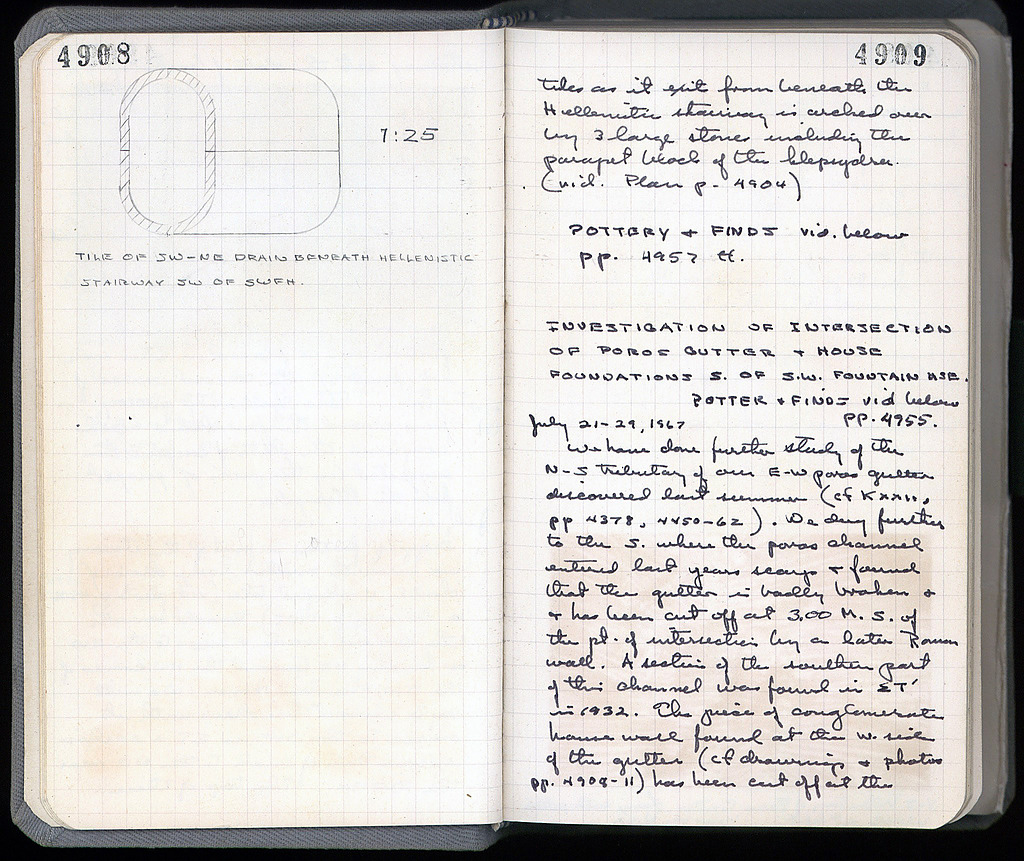 4908
1:25
TILE OF SW-NE DRAIN BENEATH HELLENISTIC
STAIRWAY SW OF SWFH.
4909
tiles as it exit from beneath the
Hellenistic stairway is arched over
by 3 large stones including the
parapet block of the klepsydra.
(vid. Plan p. 4904)
POTTERY + FINDS vid. below
pp. 4957 ff.
INVESTIGATION OF INTERSECTION
OF POROS GUTTER + HOUSE
FOUNDATIONS S. OF S.W. FOUNTAIN HSE.
POTTER + FINDS vid below
PP. 4955.
July 21-29, 1967
We have done further study of the
N-S tributary of our E-W poros gutter
discovered last summer (cf KXXII,
pp 4378, 4450-62). We dug further
to the S. where the poros channel
entered last years scarp + found
that the gutter is badly broken +
+ has been cut off at 3.00 M. S. of
the pt. of intersection by a later Roman
wall. A section of the southern part
of this channel was found in ΣΤ'
in 1932. The piece of conglomerate
house wall found at the W. side
of the gutter (cf drawing + photos
pp. 4908-11) has been cut off at the